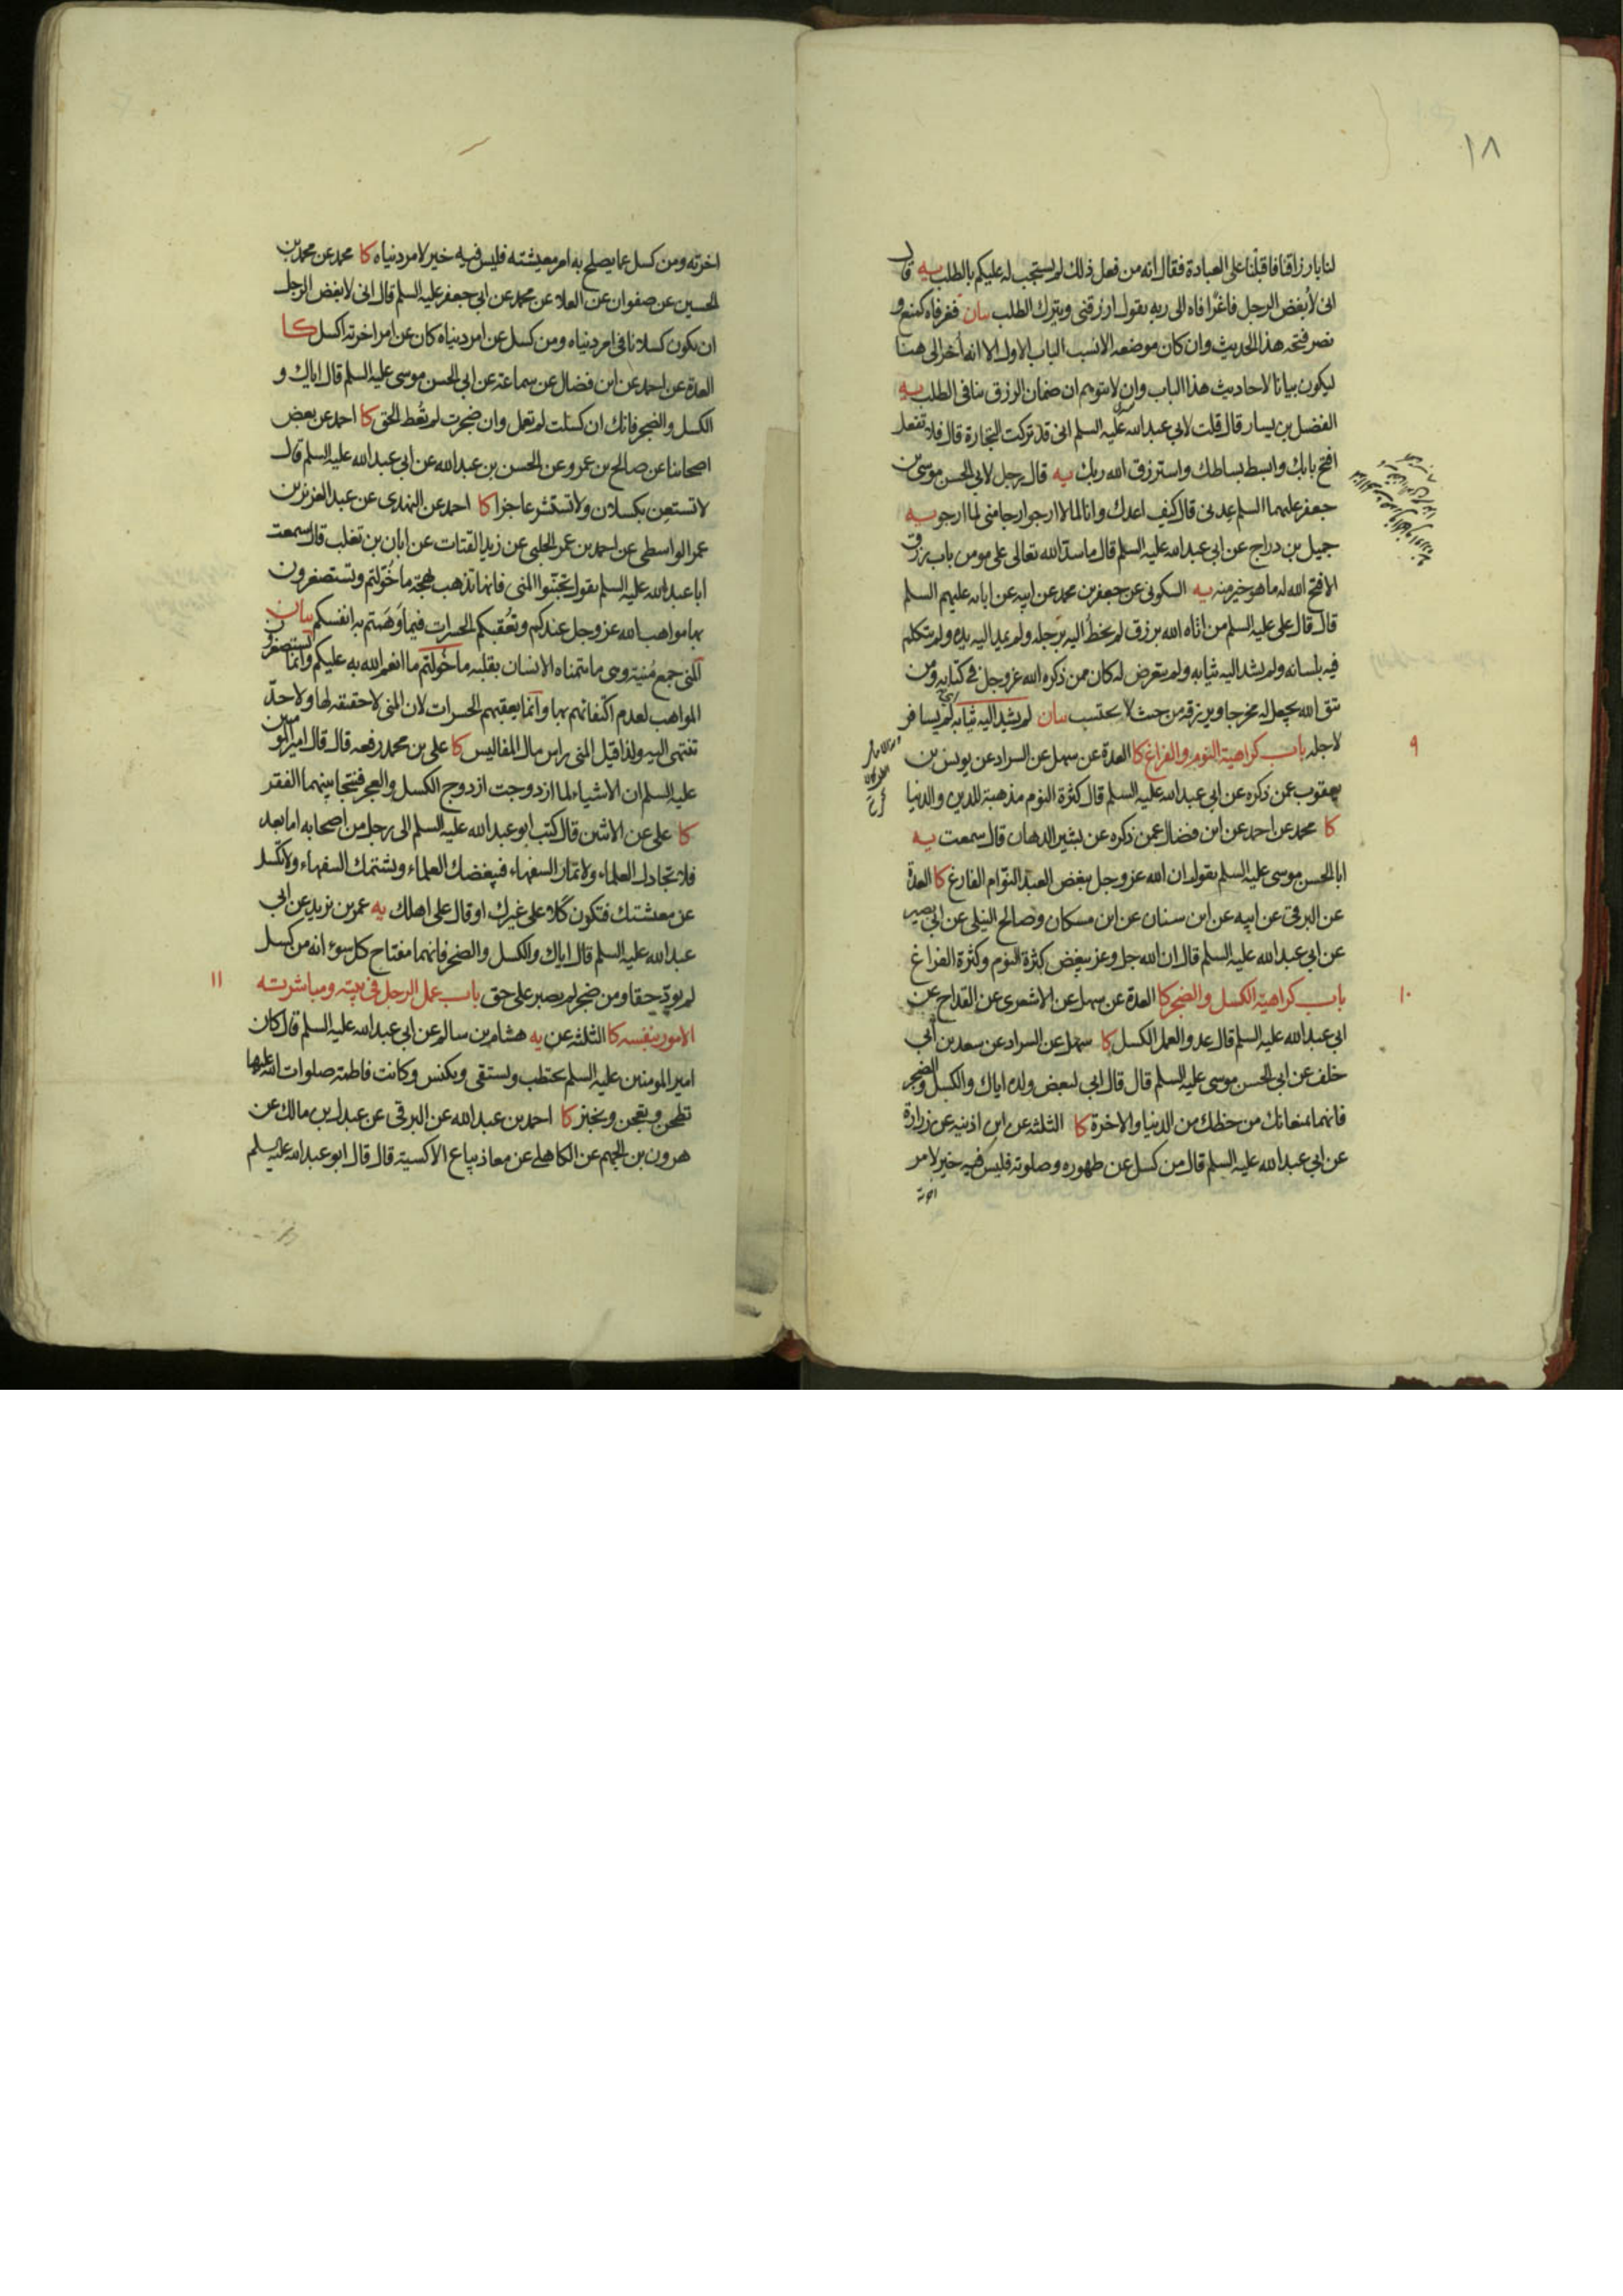 ١٨
لنا بارزاقنا فاقبلنا على العبادة فقال انه من فعل ذلك لم يستجب له عليكم بالطلب يه قال
انى لأبغض الرجل فاغرًا فاه الى ربه يقول ارزقنى ويترك الطلب بيان فغر فاه كمنع و
نصر فتحه هذا الحديث وان كان موضعه الانسب الباب الاول الا انه أخر الى هنا
ليكون بيانا لاحاديث هذا الباب وان لا يتوهم ان ضمان الرزق ينافى الطلب يه
الفضل بن يسار قال قلت لابي عبدالله عليه السلم انى قد تركت التجارة قال فلا تفعل
افتح بابك وابسط بساطك واسترزق الله ربك يه قال رجل لابي الحسن موسى بن
جعفر عليهما السلم عِدنى قال كيف اعدك وانا لما لا ارجوا ارجا منى لما ارجو يه
جميل بن دراج عن ابى عبدالله عليه السلم قال ما سدّ الله تعالى على مومن باب رزق
الا فتح الله له ما هو خير منه يه السكونى عن جعفر بن محمد عن ابيه عن ابائه عليهم السلم
قال قال على عليه السلم من اتاه الله برزق لم يخطُ اليه برجله ولم يمد اليه يده ولم يتكلم
فيه بلسانه ولم يشد اليه ثيابه ولم يتعرض له كان ممن ذكره الله عز وجل في كتابه ومن
يتق الله يجعل له مخرجا ويرزقه من حيث لا يحتسب بيان لم يشد اليه ثيابه اى لم يسافر
لاجله باب كراهية النوم والفراغ كا العدة عن سهل عن السراد عن يونس بن
٩
يعقوب عمن ذكره عن ابى عبدالله عليه السلم قال كثرة النوم مذهبة للدين والدنيا
كا محمد عن احمد عن ابن فضال عمن ذكره عن بشير الدهان قال سمعت يه
ابا الحسن موسى عليه السلم يقول ان الله عز وجل يبغض العبد النوّام الفارغ كا العدة
عن البرقى عن ابيه عن ابن سنان عن ابن مسكان وصالح النيلى عن ابي بصير
عن ابي عبدالله عليه السلم قال ان الله جل وعز يبغض كثرة النوم وكثرة الفراغ
باب كراهية الكسل والضجر كا العدة عن سهل عن الاشعرى عن القداح عن
١٠
ابي عبدالله عليه السلم قال عدو العمل الكسل كا سهل عن السراد عن سعد بن أبي
خلف عن ابى الحسن موسى عليه السلم قال قال ابي لبعض ولده اياك والكسل والضجر
فانهما يمنعانك من حظك من الدنيا والاخرة كا الثلثه عن ابن اذينه عن زرارة
عن ابي عبدالله عليه السلم قال من كسل عن طهوره وصلوته فليس فيه خير لامر
اخرته
اخرته ومن كسل عما يصلح به امر معيشته فليس فيه خير لامر دنياه كا محمد عن محمد بن
الحسين عن صفوان عن العلا عن محمد عن ابى جعفر عليه السلم قال انى لابغض الرجل
ان يكون كسلانا فى امر دنياه ومن كسل عن امر دنياه كان عن امر اخرته اكسل كا
العدة عن احمد عن ابن فضال عن سماعة عن ابى الحسن موسى عليه السلم قال اياك و
الكسل والضجر فانك ان كسلت لم تعمل وان ضجرت لم تُعط الحق كا احمد عن بعض
اصحابنا عن صالح بن عمرو عن الحسن بن عبدالله عن ابي عبدالله عليه السلم قال
لا تستعن بكسلان ولا تستشر عاجزا كا احمد عن النهدى عن عبد العزيز بن
عمر الواسطى عن احمد بن عمر الحلبى عن زيد القتات عن ابان بن تغلب قال سمعت
ابا عبدالله عليه السلم يقول تجنّبوا المنى فانها تذهب بهجة ما خُوّلتم وتستصغرون
بها مواهب الله عز وجل عندكم وتُعقبكم الحسرات فيما وَهّمتم به انفسكم بيان
المنى جمع مُنية وهى ما يتمناه الانسان بقلبه ما خُولتم ما انعم الله به عليكم وانما تستصغرون
المواهب لعدم اكتفائهم بها وانما يعقبهم الحسرات لان المنى لا حقيقة لها ولا حدّ
تنتهى اليه ولذا قيل المنى راس مال المفاليس كا على بن محمد رفعه قال قال امير المومنين
عليه السلم ان الاشياء لما ازدوجت ازدوج الكسل والعجز فنتجا بينهما الفقر
كا على عن الاثنين قال كتب ابو عبدالله عليه السلم الى رجل من اصحابه اما بعد
فلا تجادل العلماء ولا تمار السفهاء فيبغضك العلماء ويشتمك السفهاء ولا تكسل
عن معيشتك فتكون كَلّا على غيرك او قال على اهلك يه عمر بن يزيد عن ابي
عبدالله عليه السلم قال اياك والكسل والضجر فانهما مفتاح كل سوء انه من كسل
لم يودّ حقا ومن ضجر لم يصبر على حق باب عمل الرجل فى بيته ومباشرته
١١
الامور بنفسه كا الثلثه عن يه هشام بن سالم عن ابي عبدالله عليه السلم قال كان
امير المومنين عليه السلم يحتطب ويستقى ويكنس وكانت فاطمة صلوات الله عليها
تطحن وتعجن وتخبز كا احمد بن عبدالله عن البرقى عن عبدل بن مالك عن
هرون بن الجهم عن الكاهلى عن معاذ بياع الاكسية قال قال ابو عبدالله عليه السلم